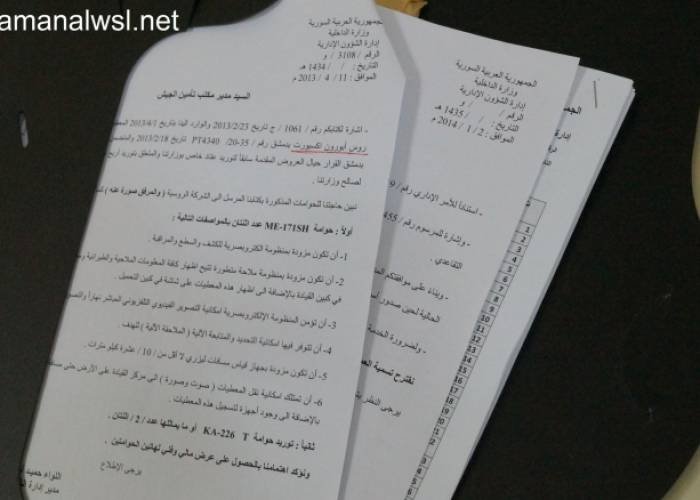 amanalwsl.net
الجمهورية العربية السورية
وزارة الداخلية
إدارة الشؤون الإدارية
الرقم / 3108 / و
التاريخ : / / 1434 هـ
الموافق : 11 / 4 / 2013 م
السيد مدير مكتب تأمين الجيش
- اشارة لكتابكم رقم / 1061 / ج تاريخ 2013/2/23 والوارد الينا بتاريخ 2013/4/1
روس أبورون اكسبورت بدمشق رقم / 35-20/ PT4340 تاريخ 2013/2/18
بدمشق القرار حيال العروض المقدمة سابقاً لتوريد عتاد خاص بوزارتنا والمتعلق بتوريد
لصالح وزارتنا .
نبين حاجتنا للحوامات المذكورة بكتابنا المرسل الى الشركة الروسية ( والمرفق صورة عنه )
أولاً : حوامة ME-171SH عدد اثنتان بالمواصفات التالية :
1- أن تكون مزودة بمنظومة الكتروبصرية للكشف والسطع والمراقبة .
2- أن تكون مزودة بمنظومة ملاحة متطورة تتيح اظهار كافة المعلومات الملاحية والطيرانية
في كبين القيادة بالإضافة الى اظهار هذه المعطيات على شاشة في كبين التحميل .
3- أن تؤمن المنظومة الإلكتروبصرية امكانية التصوير الفيديوي التلفزيوني المباشر نهاراً
4- أن تتوفر فيها امكانية التحديد والمتابعة الآلية ( الملاحقة الآلية ) للهدف .
5- أن تكون مزودة بجهاز قياس مسافات ليزري لا أقل من / 10 / عشرة كيلو مترات .
6- أن تمتلك امكانية نقل المعطيات ( صوت وصورة ) الى مركز القيادة على الأرض حتى
بالإضافة الى وجود أجهزة لتسجيل هذه المعطيات .
ثانياً : توريد حوامة KA-226 T أو ما يماثلها عدد / 2 / اثنتان .
ونؤكد اهتمامنا بالحصول على عرض مالي وفني لهاتين الحوامتين .
يرجى الاطلاع
اللواء حميد
مدير إدارة
الجمهورية العربية السورية
وزارة الداخلية
إدارة الشؤون الإدارية
الرقم / / و
التاريخ : / / 1435 هـ
الموافق : 2 / 1 / 2014 م
- استناداً للأمر الإداري رقم /
- وإشارة للمرسوم رقم / 455
التقاعدي .
- وبناء على موافقتكم
الحالية لحين صدور
- ولضرورة الخدمة
نقترح تسمية
يرجى النظر